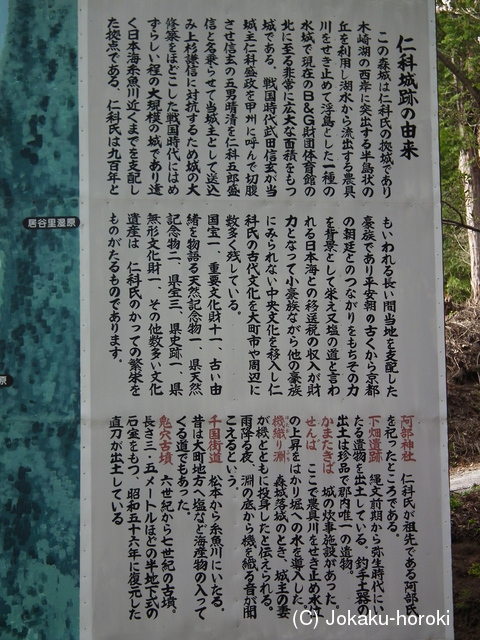 仁科城跡の由来
この森城は仁科氏の拠城であり
木崎湖の西岸に突出する半島状の
丘を利用し湖水から流出する農具
川をせき止めて浮島とした一種の
水城で現在のB&G財団体育館の
北に至る非常に広大な面積をもつ
城である。戦国時代武田信玄が当
城主仁科盛政を甲州に呼んで切腹
させ信玄の五男晴清を仁科五郎盛
信と名乗らせて当城主として送込
み上杉謙信に対抗するため城の大
修築をほどこした戦国時代にはめ
ずらしい程の大規模の城であり遠
く日本海糸魚川近くまでを支配し
た拠点である。仁科氏は九百年と
もいわれる長い間当地を支配した
豪族であり平安朝の古くから京都
の朝廷とのつながりをもちその力
を背景として栄え又塩の道と言わ
れる日本海との移送税の収入が財
力となって小豪族ながら他の豪族
にみられない中央文化を移入し仁
科氏の古代文化を大町市や周辺に
数多く残している。
国宝一、重要文化財十一、古い由
緒を物語る天然記念物一、県天然
記念物二、県宝三、県史跡一、県
無形文化財一、その他数多い文化
遺産は 仁科氏のかつての繁栄を
ものがたるものであります。
阿部神社 仁科氏が祖先である阿部氏
を祀ったところである。
下畑遺跡 縄文前期から弥生時代にい
たる遺物を出土している。釣手土器の
出土は珍品で郡内唯一の遺物。
かまたきば 城の炊事施設があった。
せんば ここで農具川をせき止め水位
の上昇をはかり堀への水を導入した。
機織り淵 森城落城のとき、城主の妻
が機とともに投身したと伝えられる。
雨降る夜、淵の底から機を織る音が聞
こえるという。
千国街道 松本から糸魚川にいたる。
昔は大町地方へ塩など海産物の入って
くる道でもあった。
鬼穴古墳 六世紀から七世紀の古墳。
長さ三・五メートルほどの半地下式の
石室をもつ、昭和五十六年に復元した
直刀が出土している
居谷里湿原
原
(C) Jokaku-horoki